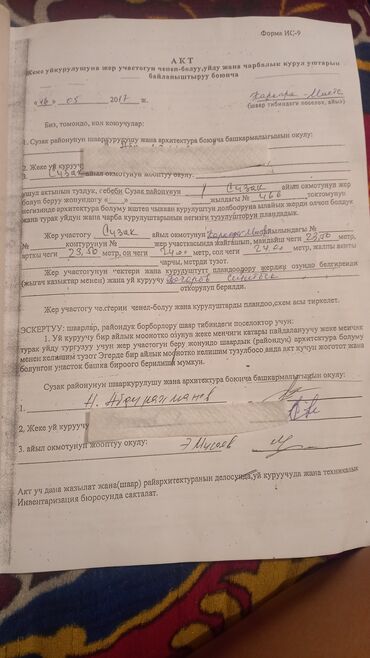 Форма ИС-9
АКТ
Жеке уйкурулушуна жер участогун ченеп-болуу,уйду жана чарбалык курулуштарын
байланыштыруу боюнча
«16» 05 2017 ж.
(шаар тибиндеги поселок, айыл)
Биз, томондо, кол коюучулар:
1. Сузак районунун шааркурулушу жана архитектура боюнча башкармалыгынын окулу:
2. Жеке уй куруучу
3. Сузак айыл окмотунун жооптуу окулу:
ушул актынын туздук, себеби Сузак районунун Сузак айыл окмотунун жер
болуп беруу жонундогу « » жылдагы № 466 токтомунун
негизинде архитектура болуму иштеп чыккан курулуштун долбооруна ылайык жерди олчоп болдук
жана турак уйдун жана чарба курулуштарынын негизги тузулушторун пландадык.
Жер участогу Сузак айыл окмотунун айылындагы №
№ контурунун № жер участкасында жайгашып, мандайы ченги 23,50 метр,
арткы ченги 23,50 метр, он ченги 24,00 метр, сол ченги 24,00 метр, жалпы аянты
чарчы, метрди тузот.
Жер участогунун чектери жана курулуштун пландоодору жердин озундо белгиренди
(жыгач казыктар менен) жана уй куруучу
откорулуп берилди.
Жер участогу чектерин ченеп-болуу жана курулуштарды пландоо,схем асы тиркелет.
ЭСКЕРТУУ: шаарлар, райондук борборлору шаар тибиндеги поселоктор учун:
1. Уй куруучу бир айлык моонотко озунук жеке менчиги катары пайдалануучу жеке менчик
турак уйду тургузуу учун жер участогун беруу жонундо шаардык (райондук) архитектура болуму
менен келишим тузот Эгерде бир айлык моонотко келишим тузулбосо анда акт кучун жоготот жана
болунгон участок башка бироого берилиши мумкун.
Сузак районунун шааркурулушу жана архитектура боюнча башкармалыгынын окулу:
1. Н. Абдурахманов
2. Жеке уй куруучу
3. айыл окмотунун жооптуу окулу: Э Мусаев
Акт уч дана жазылат жана(шаар) райархитектуранын делосунда,уй куруучуда жана техникалык
Инвентаризация бюросунда сакталат.